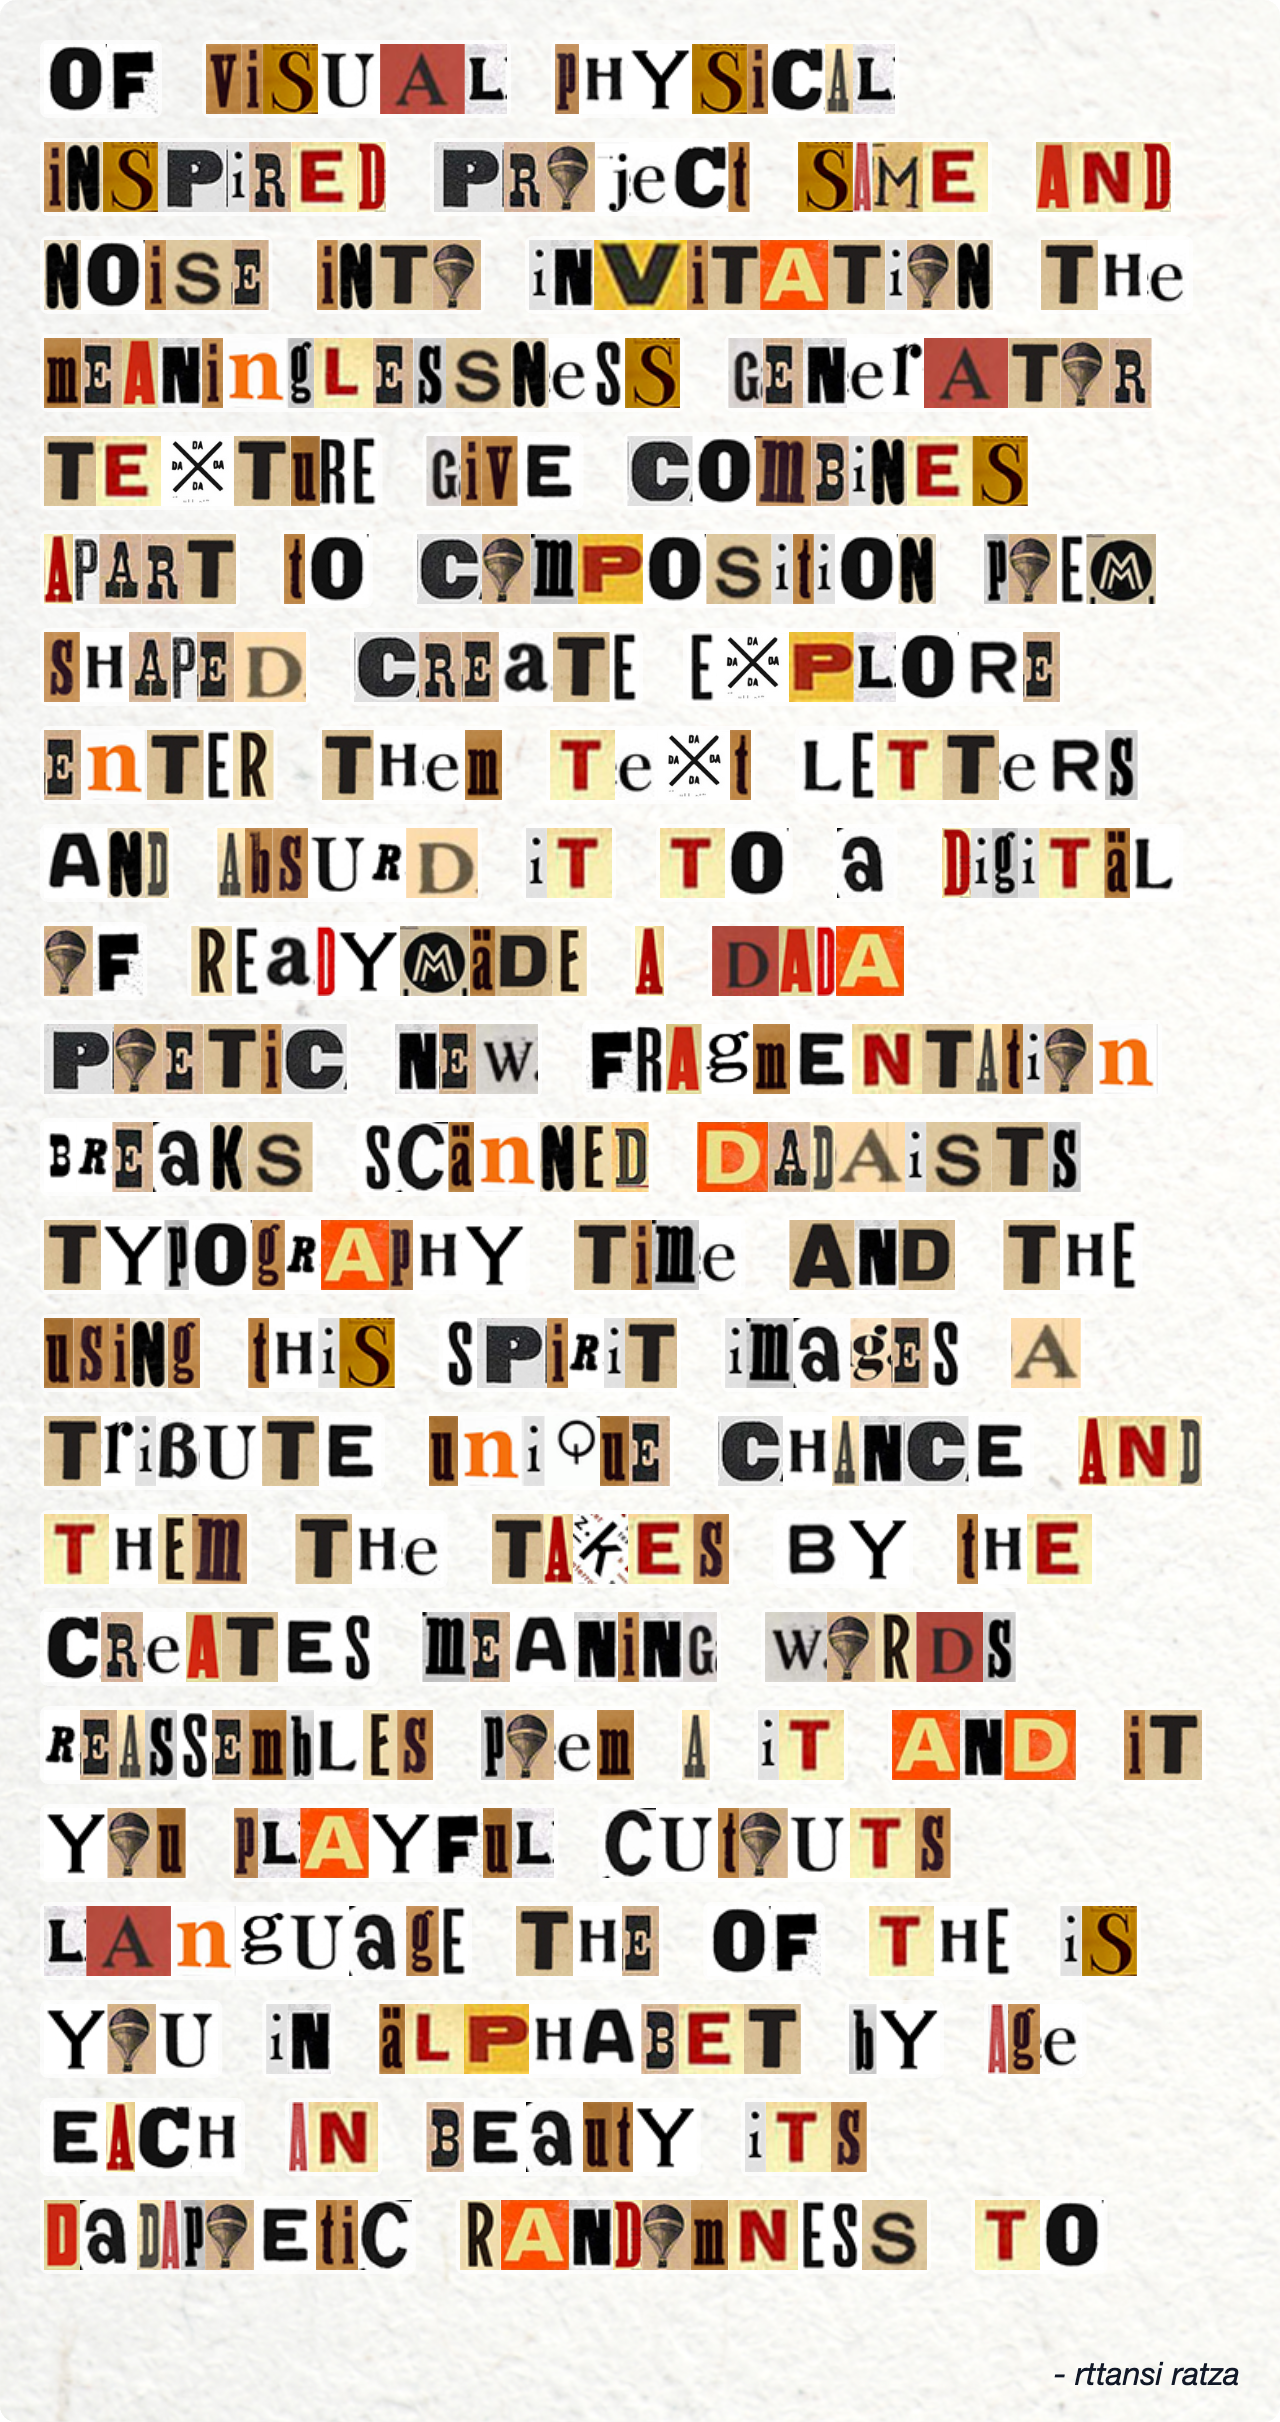 OF ViSUAL PHYSiCAL
iNSPiRED PROjeCt SAME AND
NOiSE iNTO iNViTATiON THe
mEANingLESSNeSS GENerATOR
TEXTuRE GiVE COmBiNES
APART tO COmPOSitiON POEM
SHAPED CREaTE EXPLORE
EnTER THem TeXt LETTeRS
AND AbSURD iT TO a DigiTäL
OF REaDYMäDE A DADA
POETiC NEW FRAgmENTAtiOn
BREaKS SCänNED DADAiSTS
TYpOgRApHY Time AND THE
usiNg tHiS SPiRiT imagES A
TriBUTE uniQuE CHANCE AND
THEm THe TAKES BY tHE
CReATES mEANiNG WORDS
REASSEmbLES pOem A iT AND iT
YOu pLAYFuL CUtOUTS
LAngUagE THE OF THE iS
YOU iN äLPHABET bY Age
EACH AN BEautY iTS
DaDApOEtiC RANDOmNESS TO
- rttansi ratza